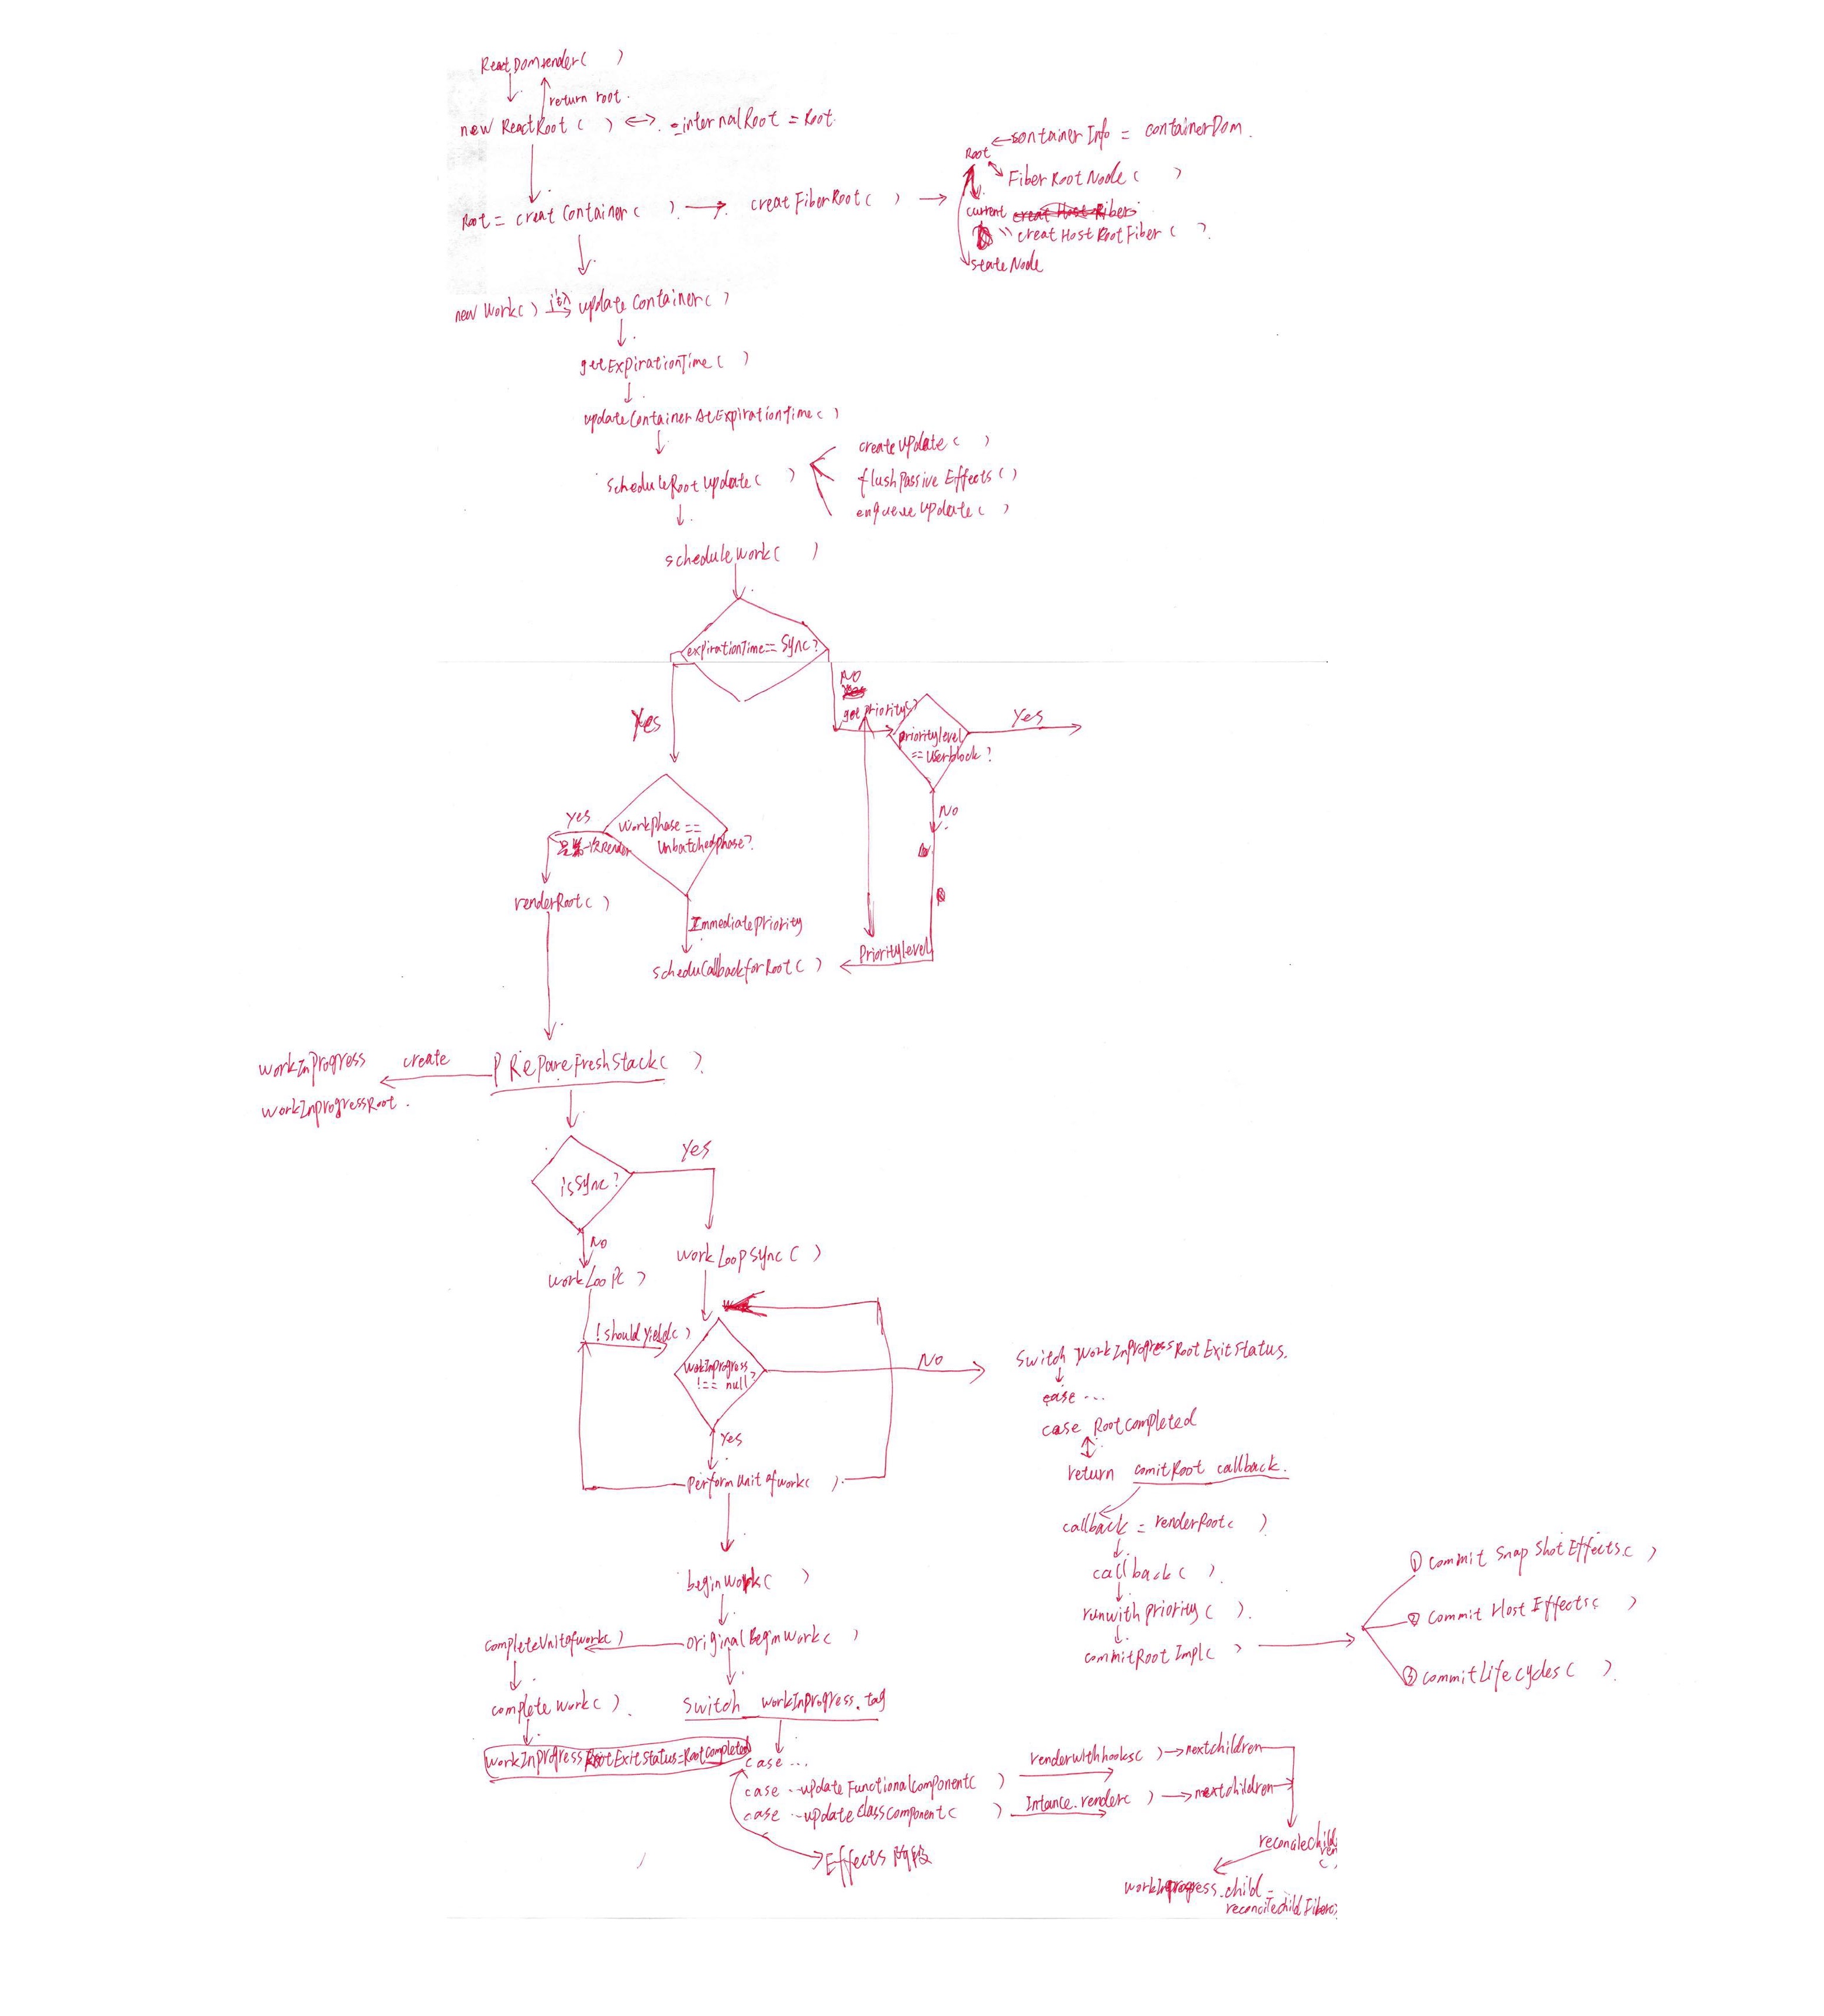 ReactDomrender( )
return root.
new ReactRoot ( ) <-> _internalRoot = Root.
containerInfo = containerDom.
Root
FiberRootNode ( )
Root = creatContainer ( ) → creatFiberRoot ( ) →
current
creatHostRootFiber ( ).
stateNode
new Work( ) → updateContainer( )
getExpirationTime ( )
updateContainerAtExpirationTime ( )
scheduleRootUpdate( )
createUpdate ( )
flushPassiveEffects ( )
enqueueUpdate ( )
scheduleWork( )
expirationTime == Sync?
Yes
NO
get priority( )
prioritylevel
== Userblock ?
Yes
No
workPhase ==
UnbatchedPhase?
yes
是第一次Render
renderRoot( )
ImmediatePriority
scheduCallbackforRoot( )
Prioritylevel
PRepareFreshStack( )
create
workInProgress
workInprogressRoot.
isSync?
Yes
No
workLoop( )
workLoopSync ( )
!shouldYield( )
workInprogress
!== null?
No
Yes
PerformUnitofwork( )
Switch workInProgressRootExitStatus.
case ...
case RootCompleted
return comitRoot callback.
callback = renderRoot( )
callback( )
runwithpriority ( ).
commitRootImpl( )
① commit SnapShotEffects( )
② commit Host Effects( )
③ commitLifecycles ( ).
beginWork( )
originalBeginWork( )
completeUnitofwork( )
complete work( ).
workInprogressRootExitStatus=RootCompleted
Switch workInprogress.tag
case ...
case --updateFunctionalcomponent( )
case --updateclasscomponent( )
renderwithhooks( ) → nextchildren
Intance.render( ) → nextchildren
Effects 阶段
reconcilechildren
( )
workInprogress.child =
reconcilechildFibers